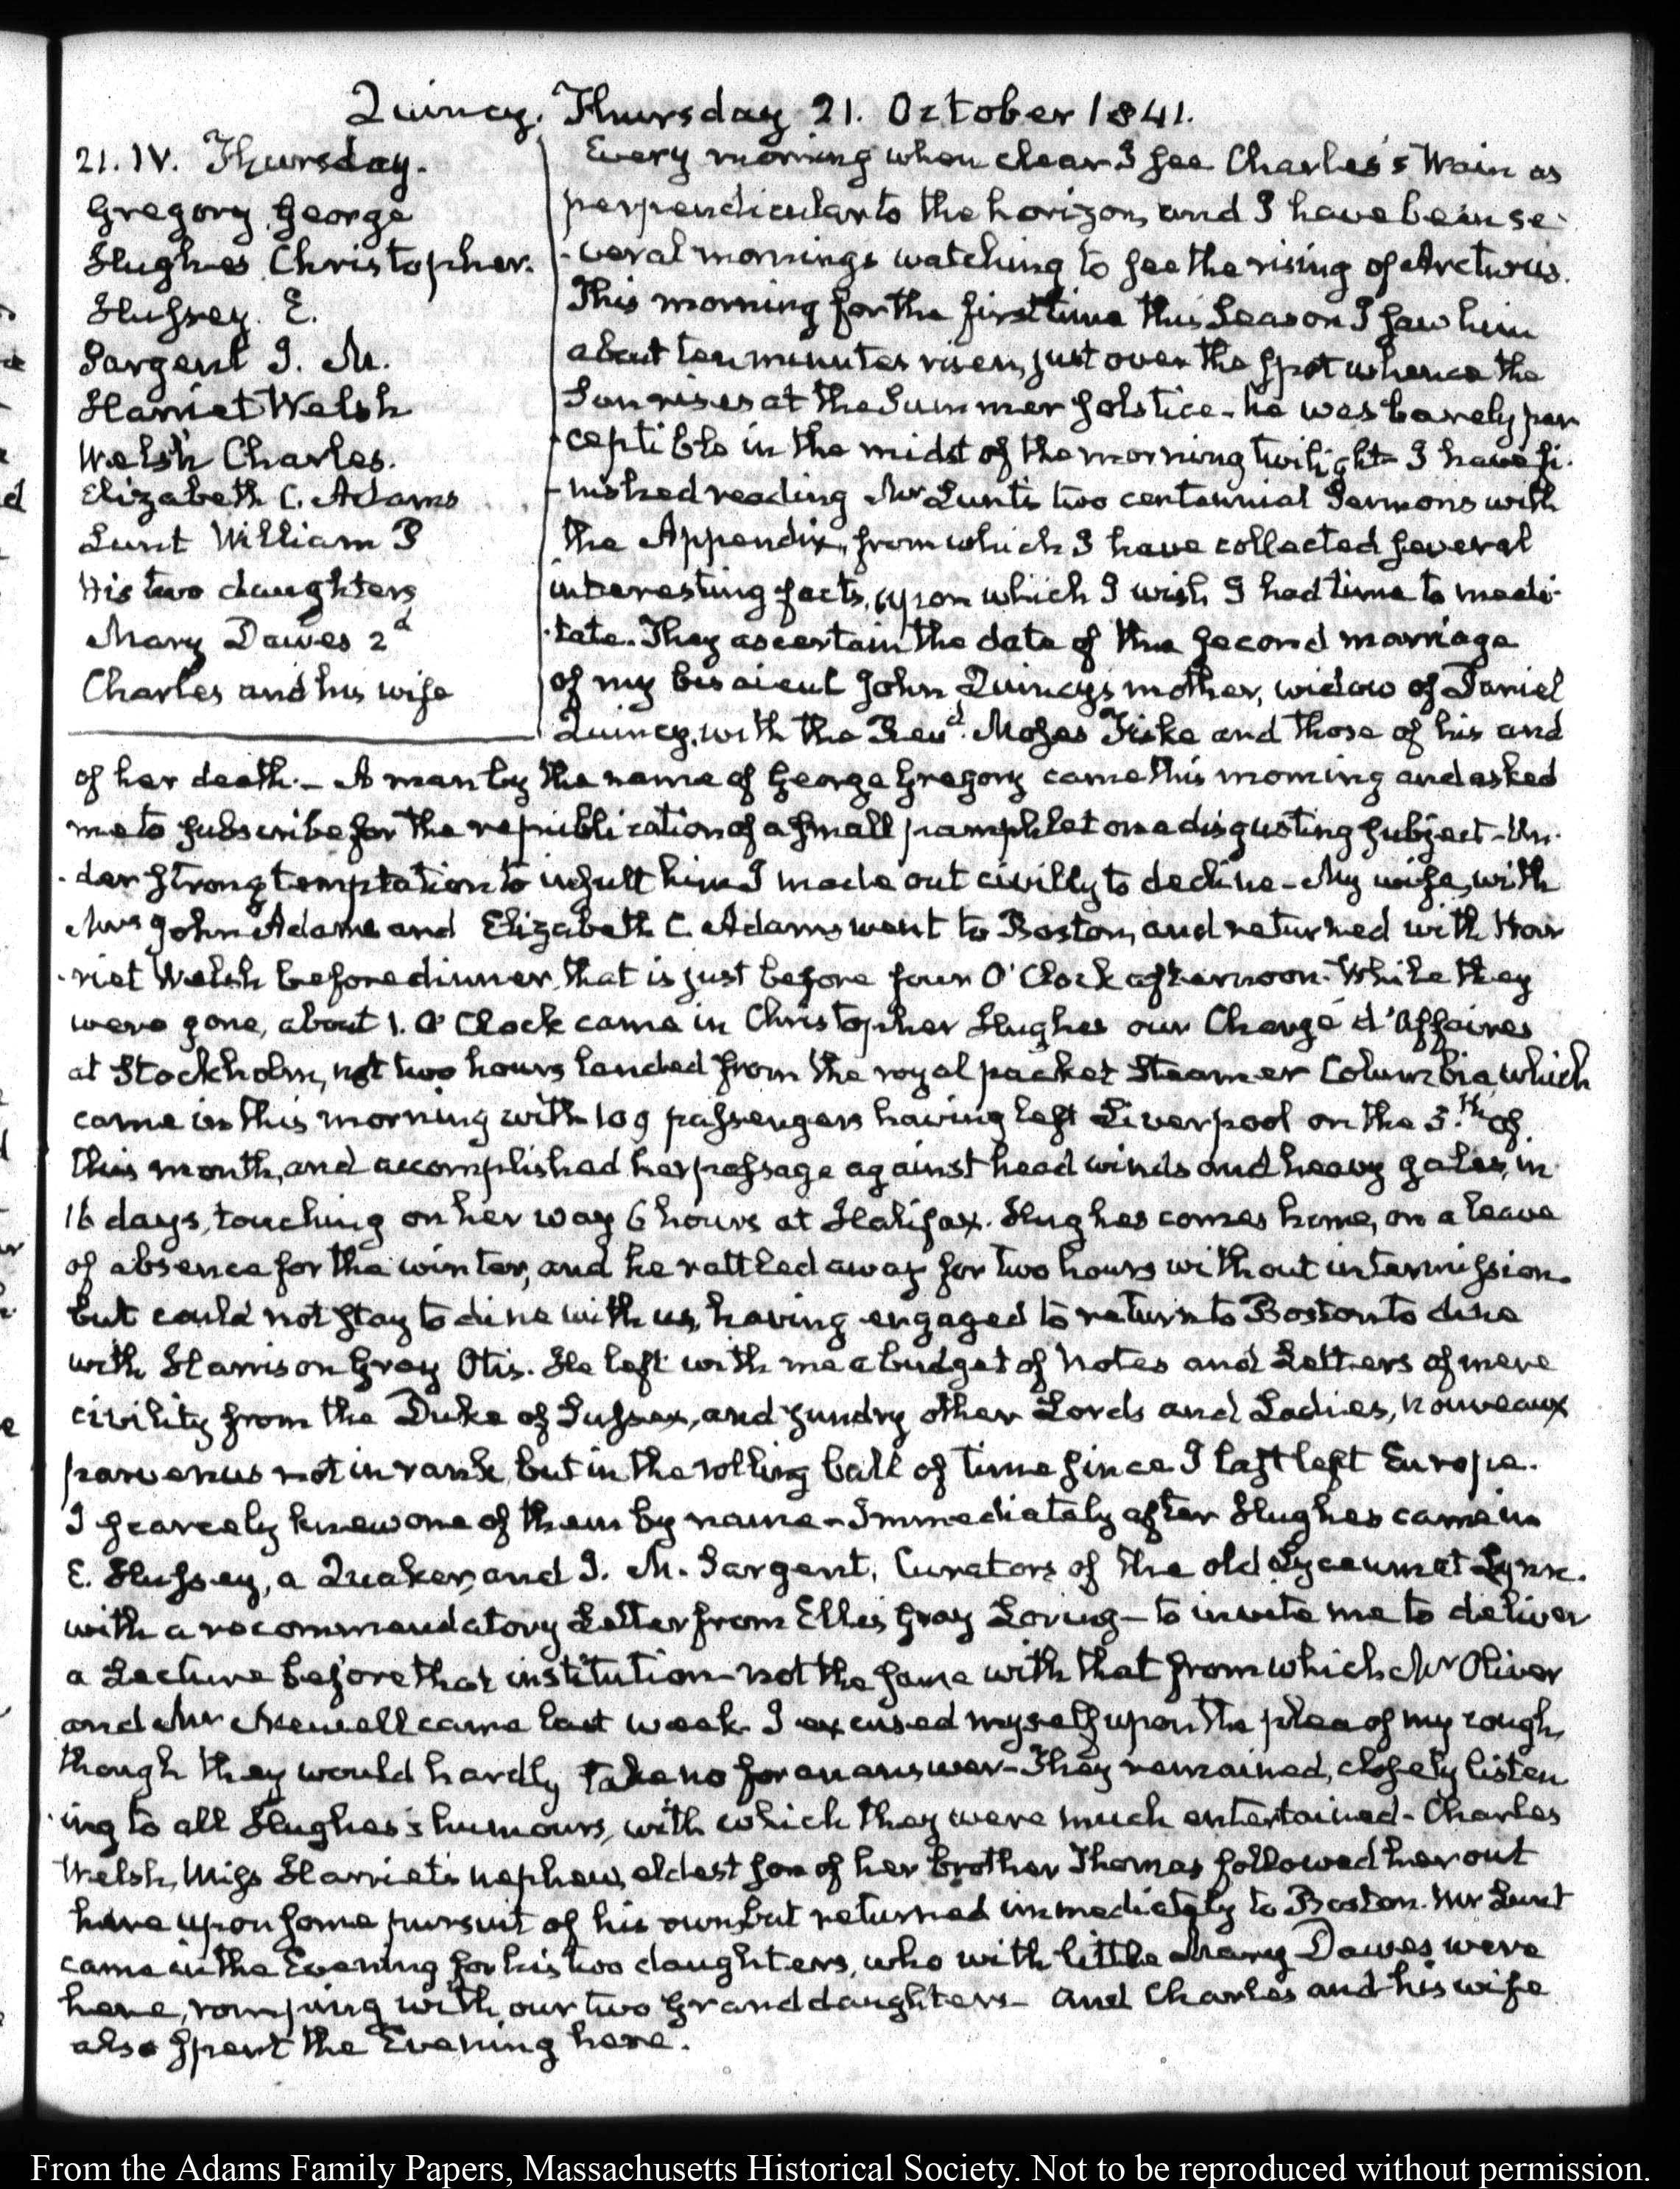 Quincy. Thursday 21. October 1841.
21. IV. Thursday.
Gregory George
Hughes Christopher.
Hussey. E.
Sargent J. M.
Harriet Welsh
Welsh Charles.
Elizabeth C. Adams
Lunt William P
His two daughters
Mary Dawes 2d
Charles and his wife
Every morning when clear I see Charles's Wain as
perpendicular to the horizon, and I have been se-
-veral mornings watching to see the rising of Arcturus.
This morning for the first time this Season I saw him
about ten minutes risen, just over the spot whence the
Sun rises at the Summer solstice - he was barely per
-ceptible in the midst of the morning twilight - I have fi-
-nished reading Mr Lunt's two centennial Sermons with
the Appendix, from which I have collected several
interesting facts, upon which I wish I had time to medi-
-tate. They ascertain the date of the second marriage
of my bisaieul John Quincy's mother, widow of Daniel
Quincy, with the Revd. Moses Fiske and those of his and
of her death. - A man by the name of George Gregory came this morning and asked
me to subscribe for the republication of a small pamphlet on a disgusting subject - Un-
-der strong temptation to insult him I made out civilly to decline - My wife, with
Mrs John Adams and Elizabeth C. Adams went to Boston, and returned with Har
-riet Welsh before dinner, that is just before four O'Clock afternoon. While they
were gone, about 1. O'Clock came in Christopher Hughes our Chargé d'Affaires
at Stockholm, not two hours landed from the royal packet Steamer Columbia which
came in this morning with 109 passengers having left Liverpool on the 5.th of
this month, and accomplished her passage against head winds and heavy gales, in
16 days, touching on her way 6 hours at Halifax. Hughes comes home, on a leave
of absence for the winter, and he rattled away for two hours without intermission.
but could not stay to dine with us, having engaged to return to Boston to dine
with Harrison Gray Otis. He left with me a budget of Notes and Letters of mere
civility from the Duke of Sussex, and sundry other Lords and Ladies, nouveaux
parvenus not in rank, but in the rolling ball of time since I last left Europe.
I scarcely knew one of them by name - Immediately after Hughes came in
E. Hussey, a Quaker, and J. M. Sargent, Curators of the old Lyceum at Lynn.
with a recommendatory Letter from Ellis Gray Loring - to invite me to deliver
a Lecture before that institution - not the same with that from which Mr Oliver
and Mr Newell came last week. I excused myself upon the plea of my cough,
though they would hardly take no for an answer - They remained, closely listen
-ing to all Hughes's humours, with which they were much entertained - Charles
Welsh, Miss Harriet's nephew, eldest son of her brother Thomas followed her out
here upon some pursuit of his own, but returned immediately to Boston. Mr Lunt
came in the Evening for his two daughters, who with little Mary Dawes were
here, romping with our two Grand daughters - and Charles and his wife
also spent the Evening here.
From the Adams Family Papers, Massachusetts Historical Society. Not to be reproduced without permission.